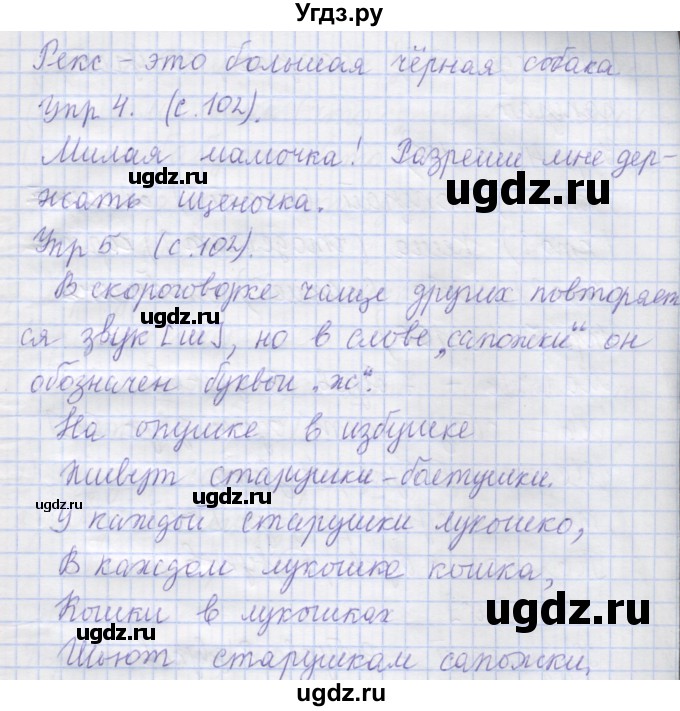 Угдз.ру
Рекс – это большая чёрная собака
Упр 4. (с. 102).
Милая мамочка! Разреши мне дер-
жать щеночка.
Упр 5 (с. 102).
В скороговорке чаще других повторяет
ся звук [ш], но в слове „сапожки“ он
обозначен буквой „ж“.
На опушке в избушке
Живут старушки-болтушки.
У каждой старушки лукошко,
В каждом лукошке кошка,
Кошки в лукошках
Шьют старушкам сапожки.
ugdz.ru
ugdz.ru
ugdz.ru
ugdz.ru
ugdz.ru
ugdz.ru
ugdz.ru
ugdz.ru
ugdz.ru
ugdz.ru